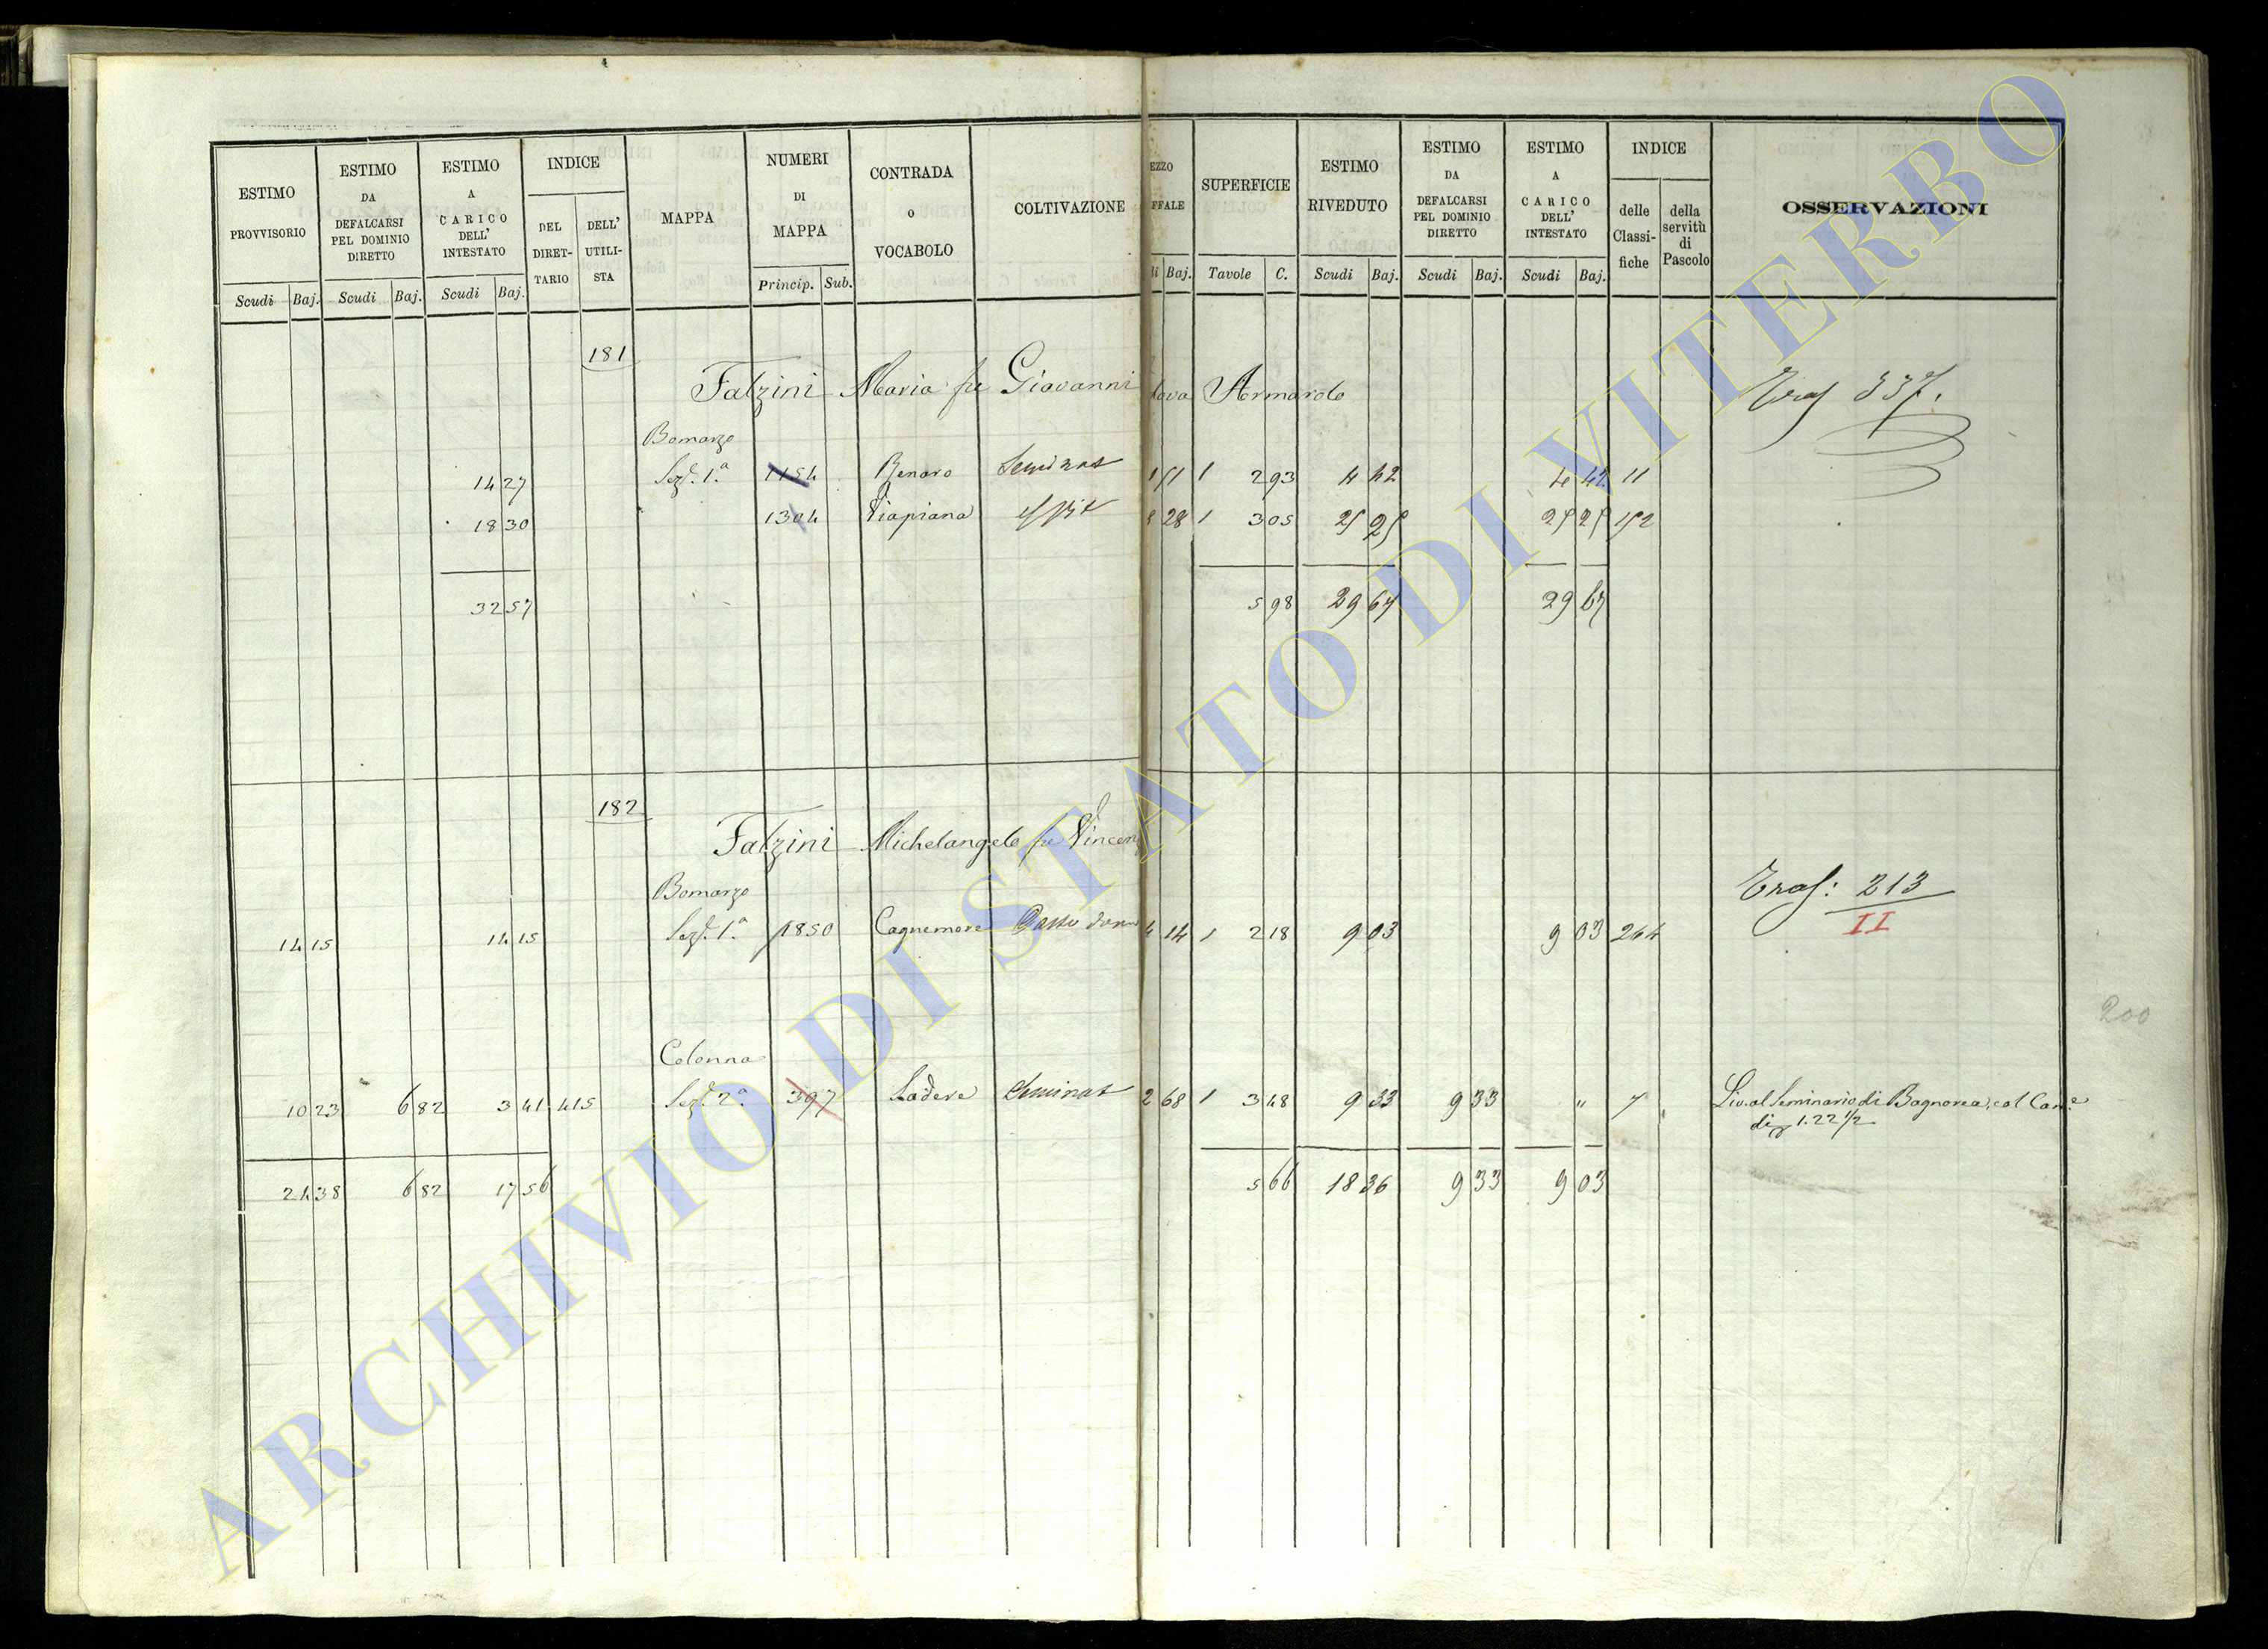 ESTIMO PROVVISORIO
ESTIMO DA DEFALCARSI PEL DOMINIO DIRETTO
ESTIMO A CARICO DELL' INTESTATO
INDICE
DEL DIRET-TARIO
DELL' UTILI-STA
MAPPA
NUMERI DI MAPPA
CONTRADA O VOCABOLO
COLTIVAZIONE
EZZO
FFALE
SUPERFICIE
ESTIMO RIVEDUTO
ESTIMO DA DEFALCARSI PEL DOMINIO DIRETTO
ESTIMO A CARICO DELL' INTESTATO
INDICE
delle Classi-fiche
della servitù di Pascolo
OSSERVAZIONI
Scudi Baj. Scudi Baj. Scudi Baj. Princip. Sub. di Baj. Tavole C. Scudi Baj. Scudi Baj. Scudi Baj.
181
Falzini Maria fu Giovanni Armando
Tras 337.
Bomarzo
14 27 Sez. 1.a 1154 Renaro Seminat 1 2 93 4 42 4 42 11
18 30 1304 Viapiana 28 1 3 05 25 25 25 25 152
32 57 5 98 29 67 29 67
182
Falzini Michelangelo fu Vincen
Bomarzo
Tras: 213
II
14 15 14 15 Sez. 1.a 1850 Cagnemore 4 14 1 2 18 9 03 9 03 264
200
Colonna
10 23 6 82 3 41 415 Sez. 2.a 397 Seminat 2 68 1 3 48 9 33 9 33 " 7 Liv. al Seminario di Bagnorea, col Can.e
di 1.22 1/2
24 38 6 82 17 56 5 66 18 36 9 33 9 03
ARCHIVIO DI STATO DI VITERBO